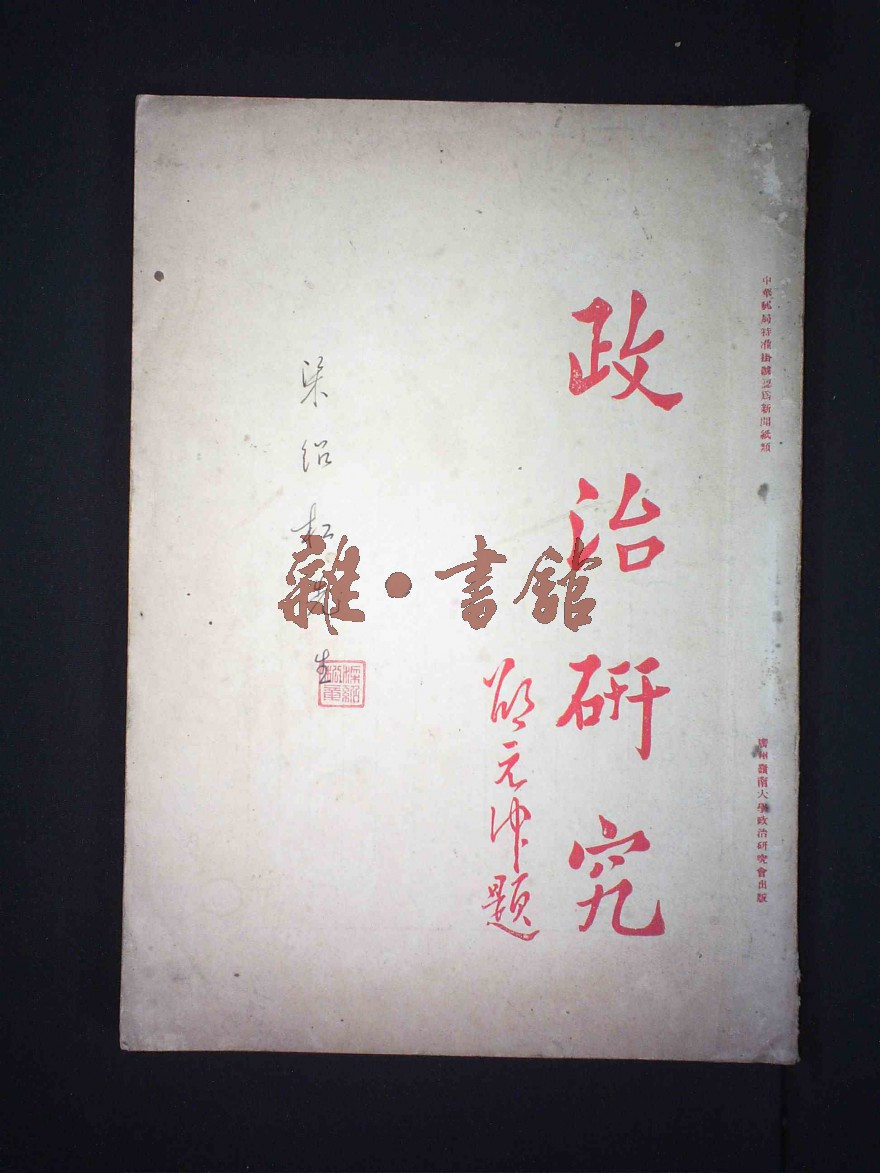 中華郵局特准掛號認爲新聞紙類
廣州嶺南大學政治研究會出版
政治研究
邵元沖題
梁紹
生
雜·書舘